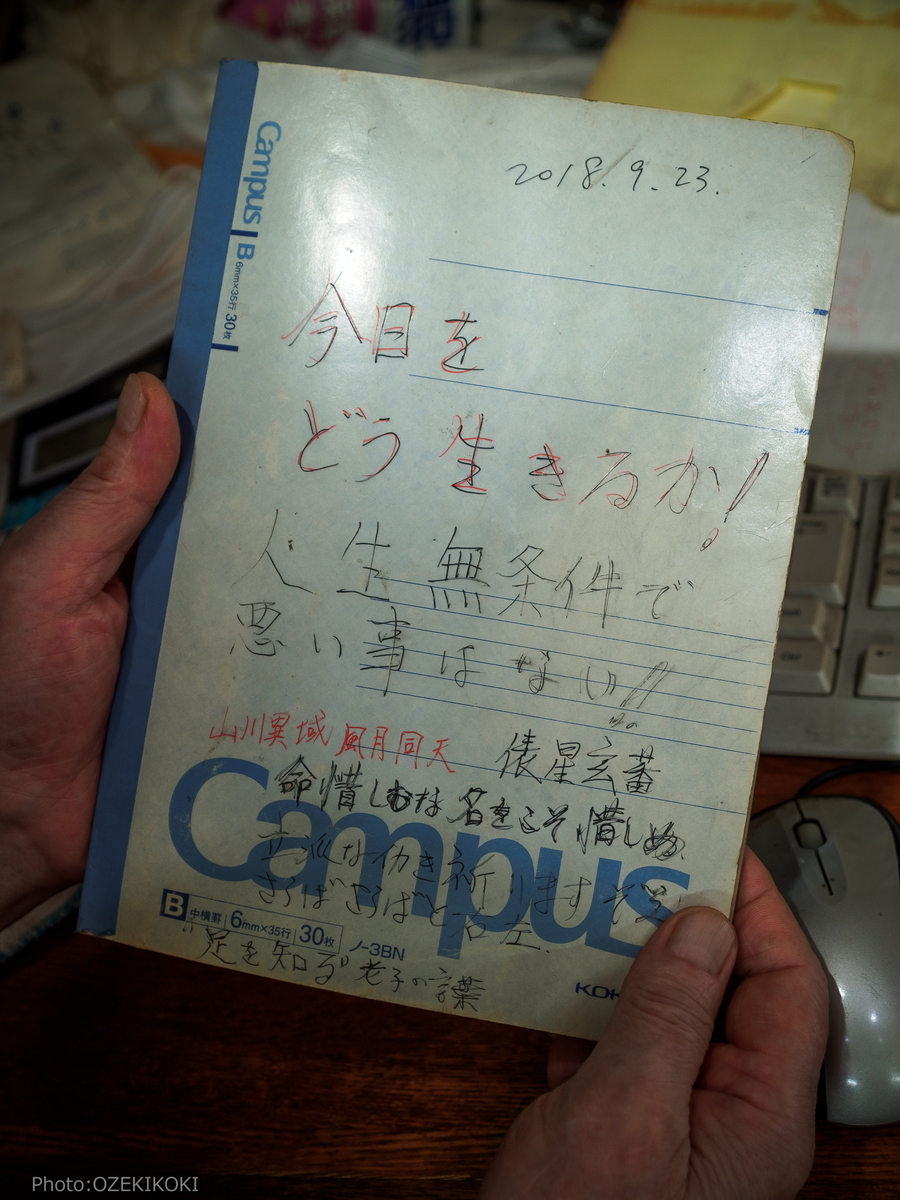 2018.9.23.
Campus B 6mm×35行 30枚
今日を
どう生きるか!
人生無条件で
悪い事はない!!
山川異域 風月同天 俵星玄蕃
命惜しむな 名をこそ惜しめ
立派な働き祈りますぞえ
さらばさらばと右左.
Campus
B 中横罫 6mm×35行 30枚 ノ-3BN
"足を知る" 老子の言葉
Photo:OZEKIKOKI